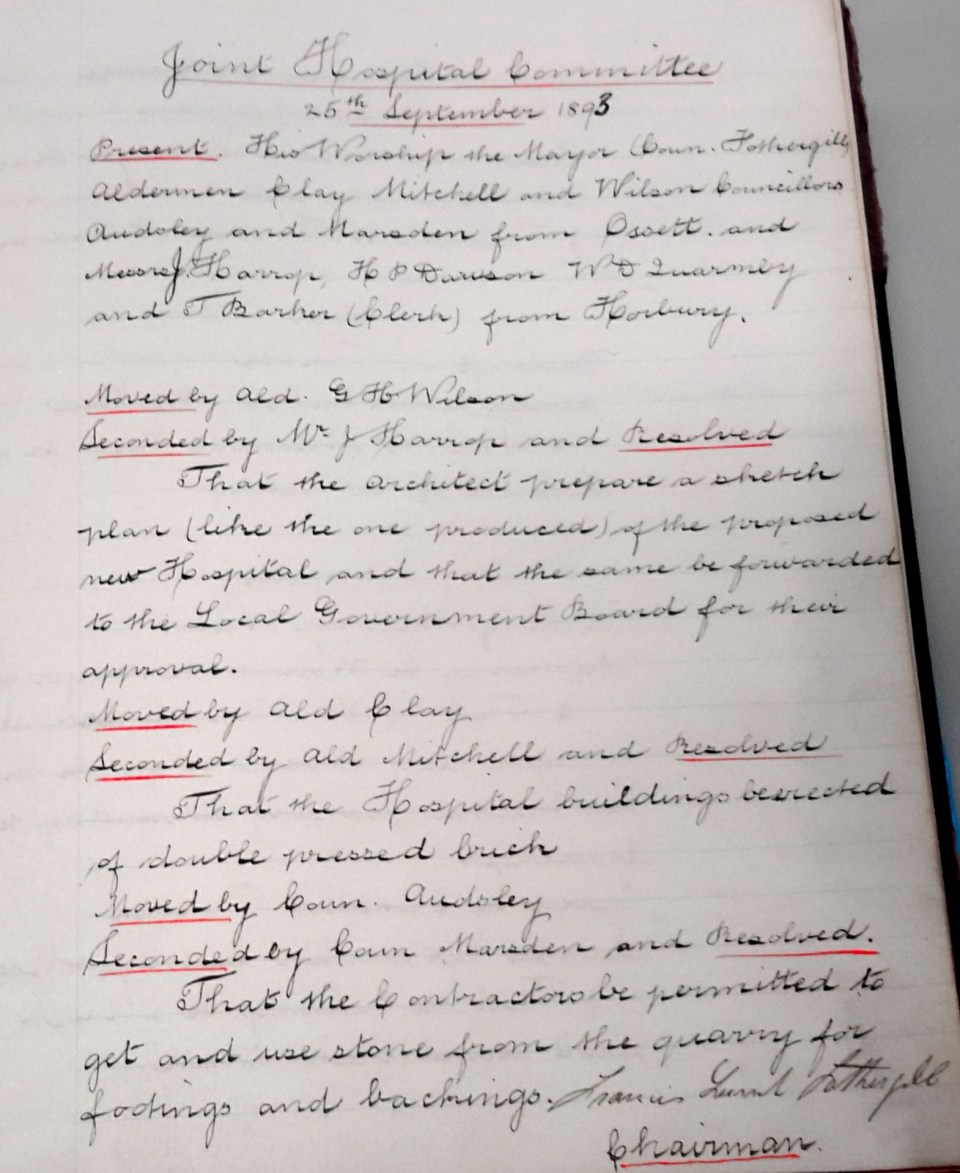 Joint Hospital Committee
25th September 1893
Present. His Worship the Mayor (Coun. Fothergill)
Aldermen Clay Mitchell and Wilson Councillors
Audsley and Marsden from Ossett. and
Messrs J. Harrop, H P Dawson W D Quarmby
and T Barker (Clerk) from Horbury.
Moved by Ald. G H Wilson
Seconded by Mr J Harrop and Resolved
That the architect prepare a sketch
plan (like the one produced) of the proposed
new Hospital and that the same be forwarded
to the Local Government Board for their
approval.
Moved by Ald Clay
Seconded by Ald Mitchell and Resolved
That the Hospital buildings be erected
of double pressed brick
Moved by Coun. Audsley
Seconded by Coun Marsden and Resolved.
That the Contractors be permitted to
get and use stone from the quarry for
footings and backings. Francis Fothergill
Chairman.